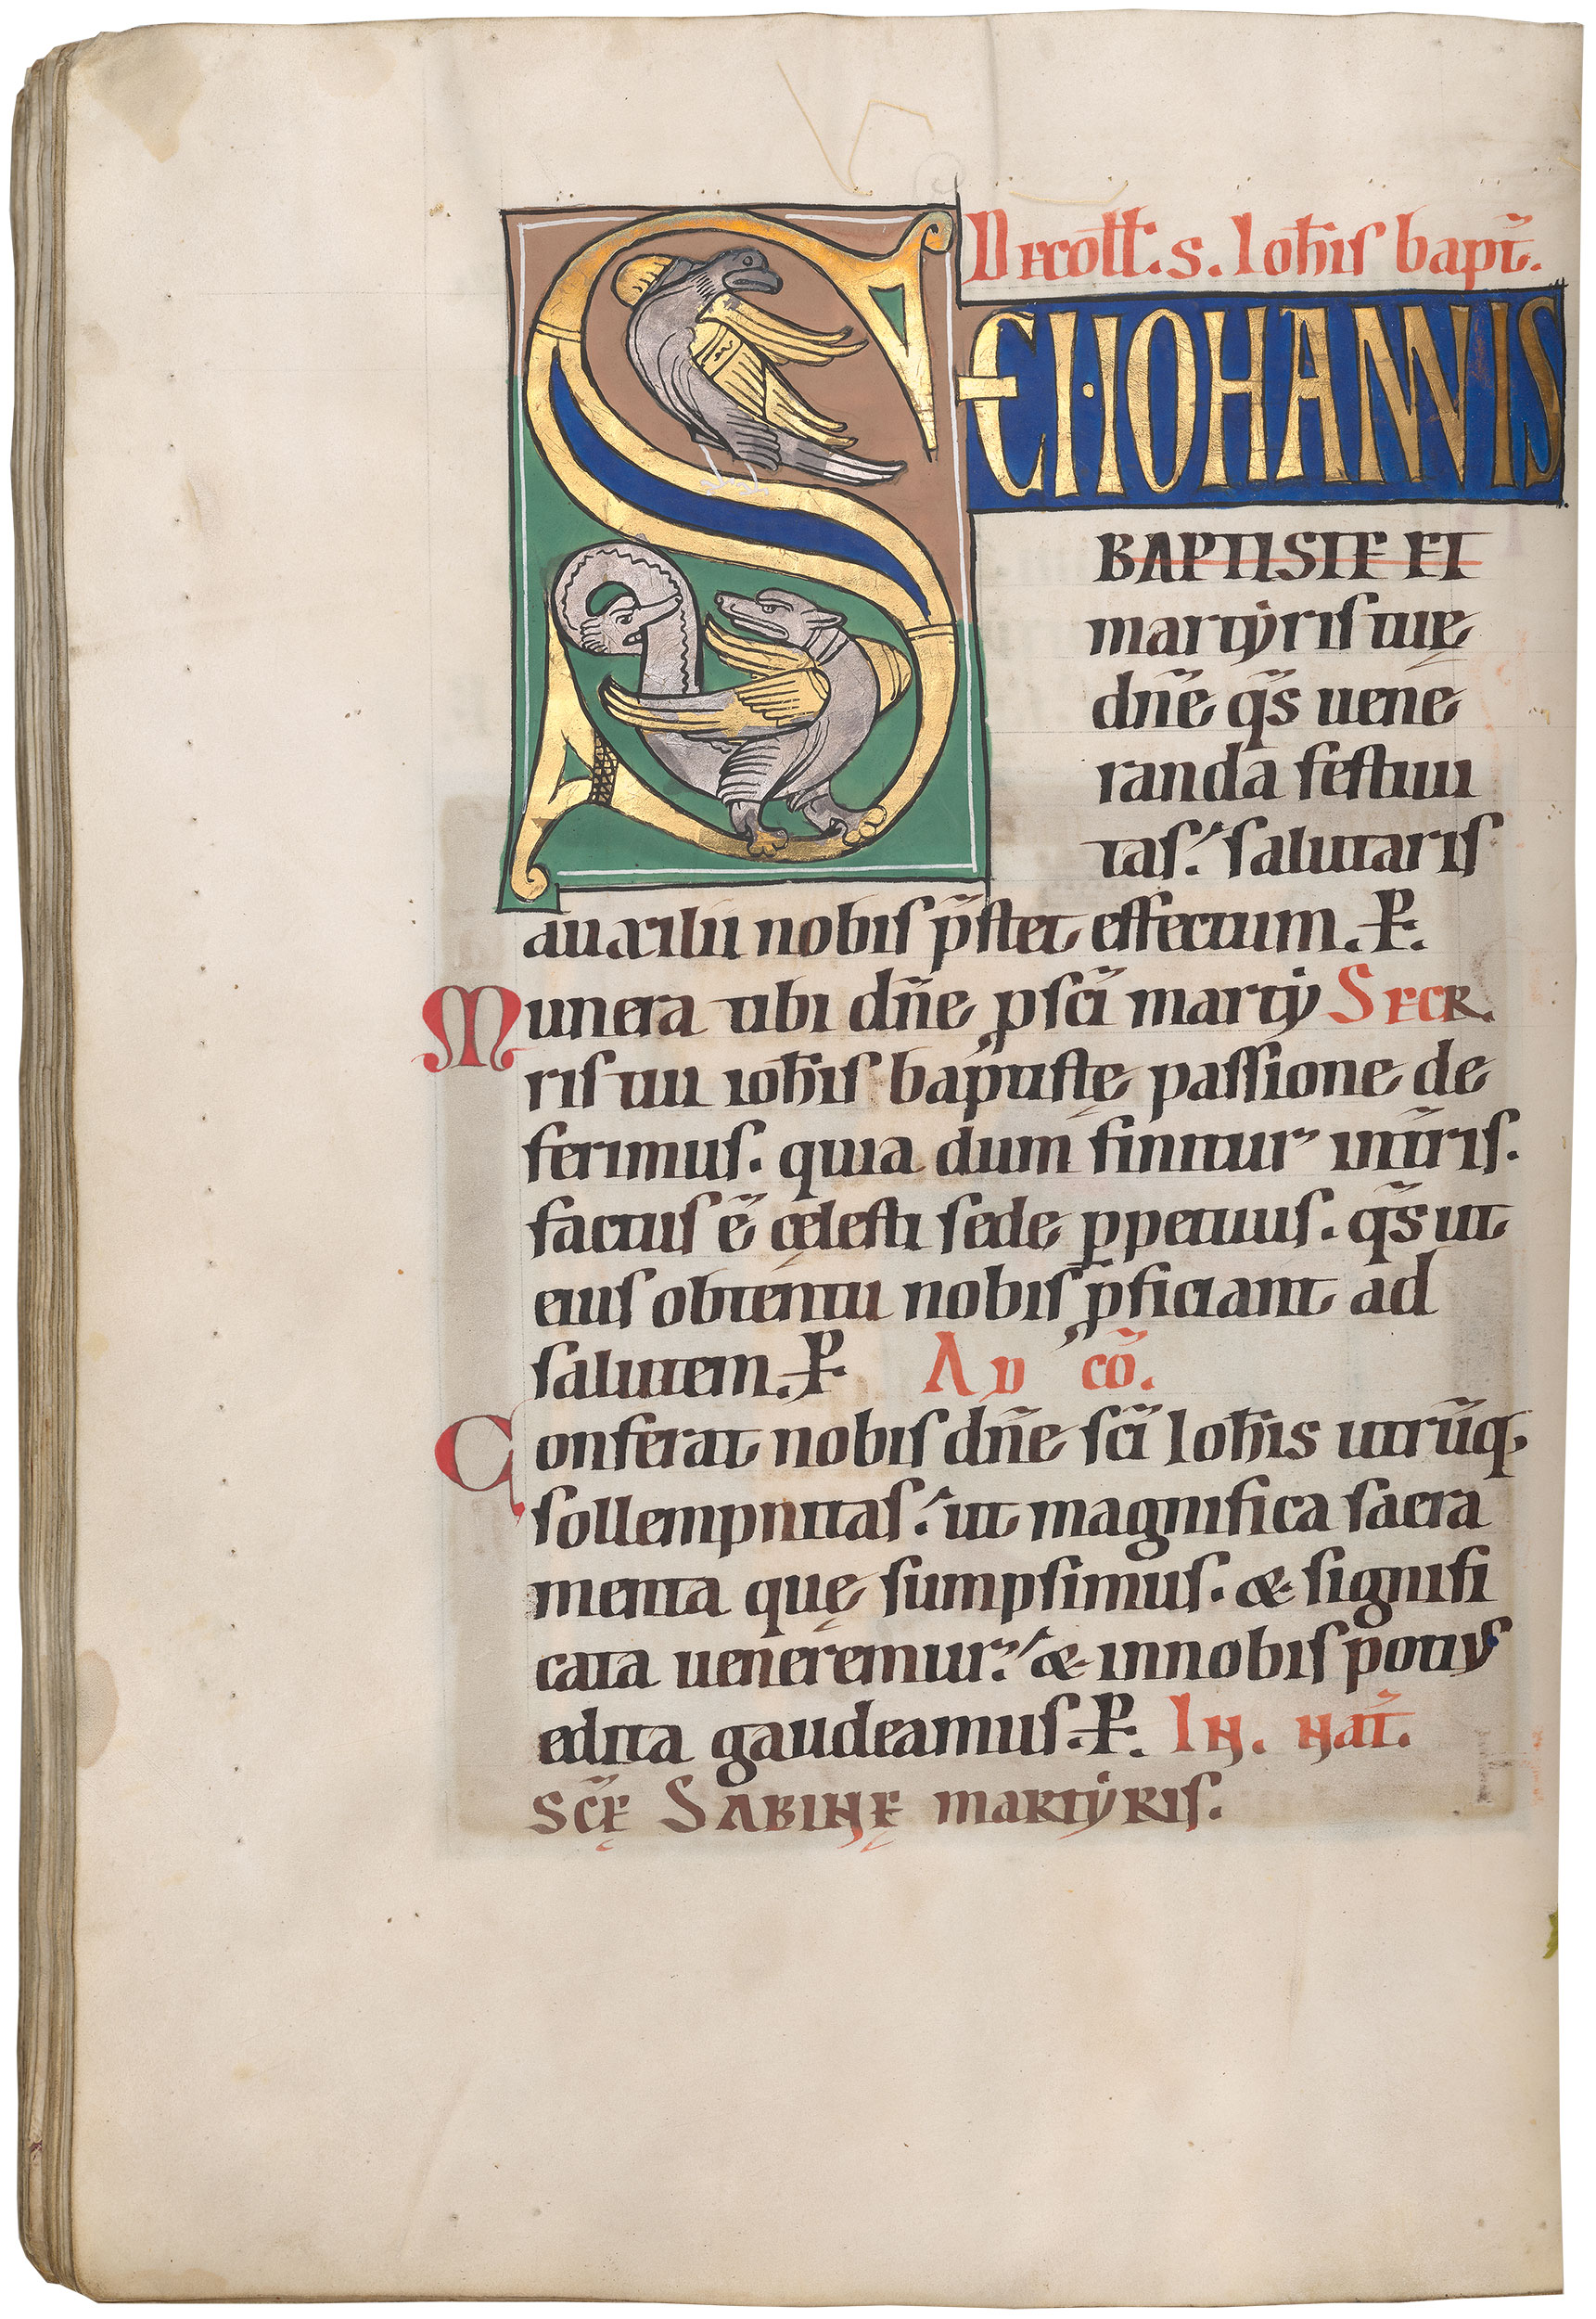 Decoll̄. s. Ioh̄is bapt̄.
SC̄I·IOHANNIS
BAPTISTE ET
martẏris tui ę
dn̄e q̄s uene
randa festiui
tas. salutaris
auxilii nobis p̄stet effectum. P.
Munera tibi dn̄e ꝓ sc̄i martẏ Secr.
ris tui ioh̄is baptistę passione de
ferimus. quia dum finitur in tr̄ris.
factus ē cęlesti sede ꝑpetuus. q̄s ut
eius obtentu nobis ꝓficiant ad
salutem. P. Ad cō.
Conferat nobis dn̄e sc̄i Ioh̄is utrūq;
sollempnitas. ut magnifica sacra
menta quę sumpsimus. & signifi
cata ueneremur. & in nobis potius
edita gaudeamus. P. IN. NAT̄.
SC̄Ę SABINĘ martẏris.